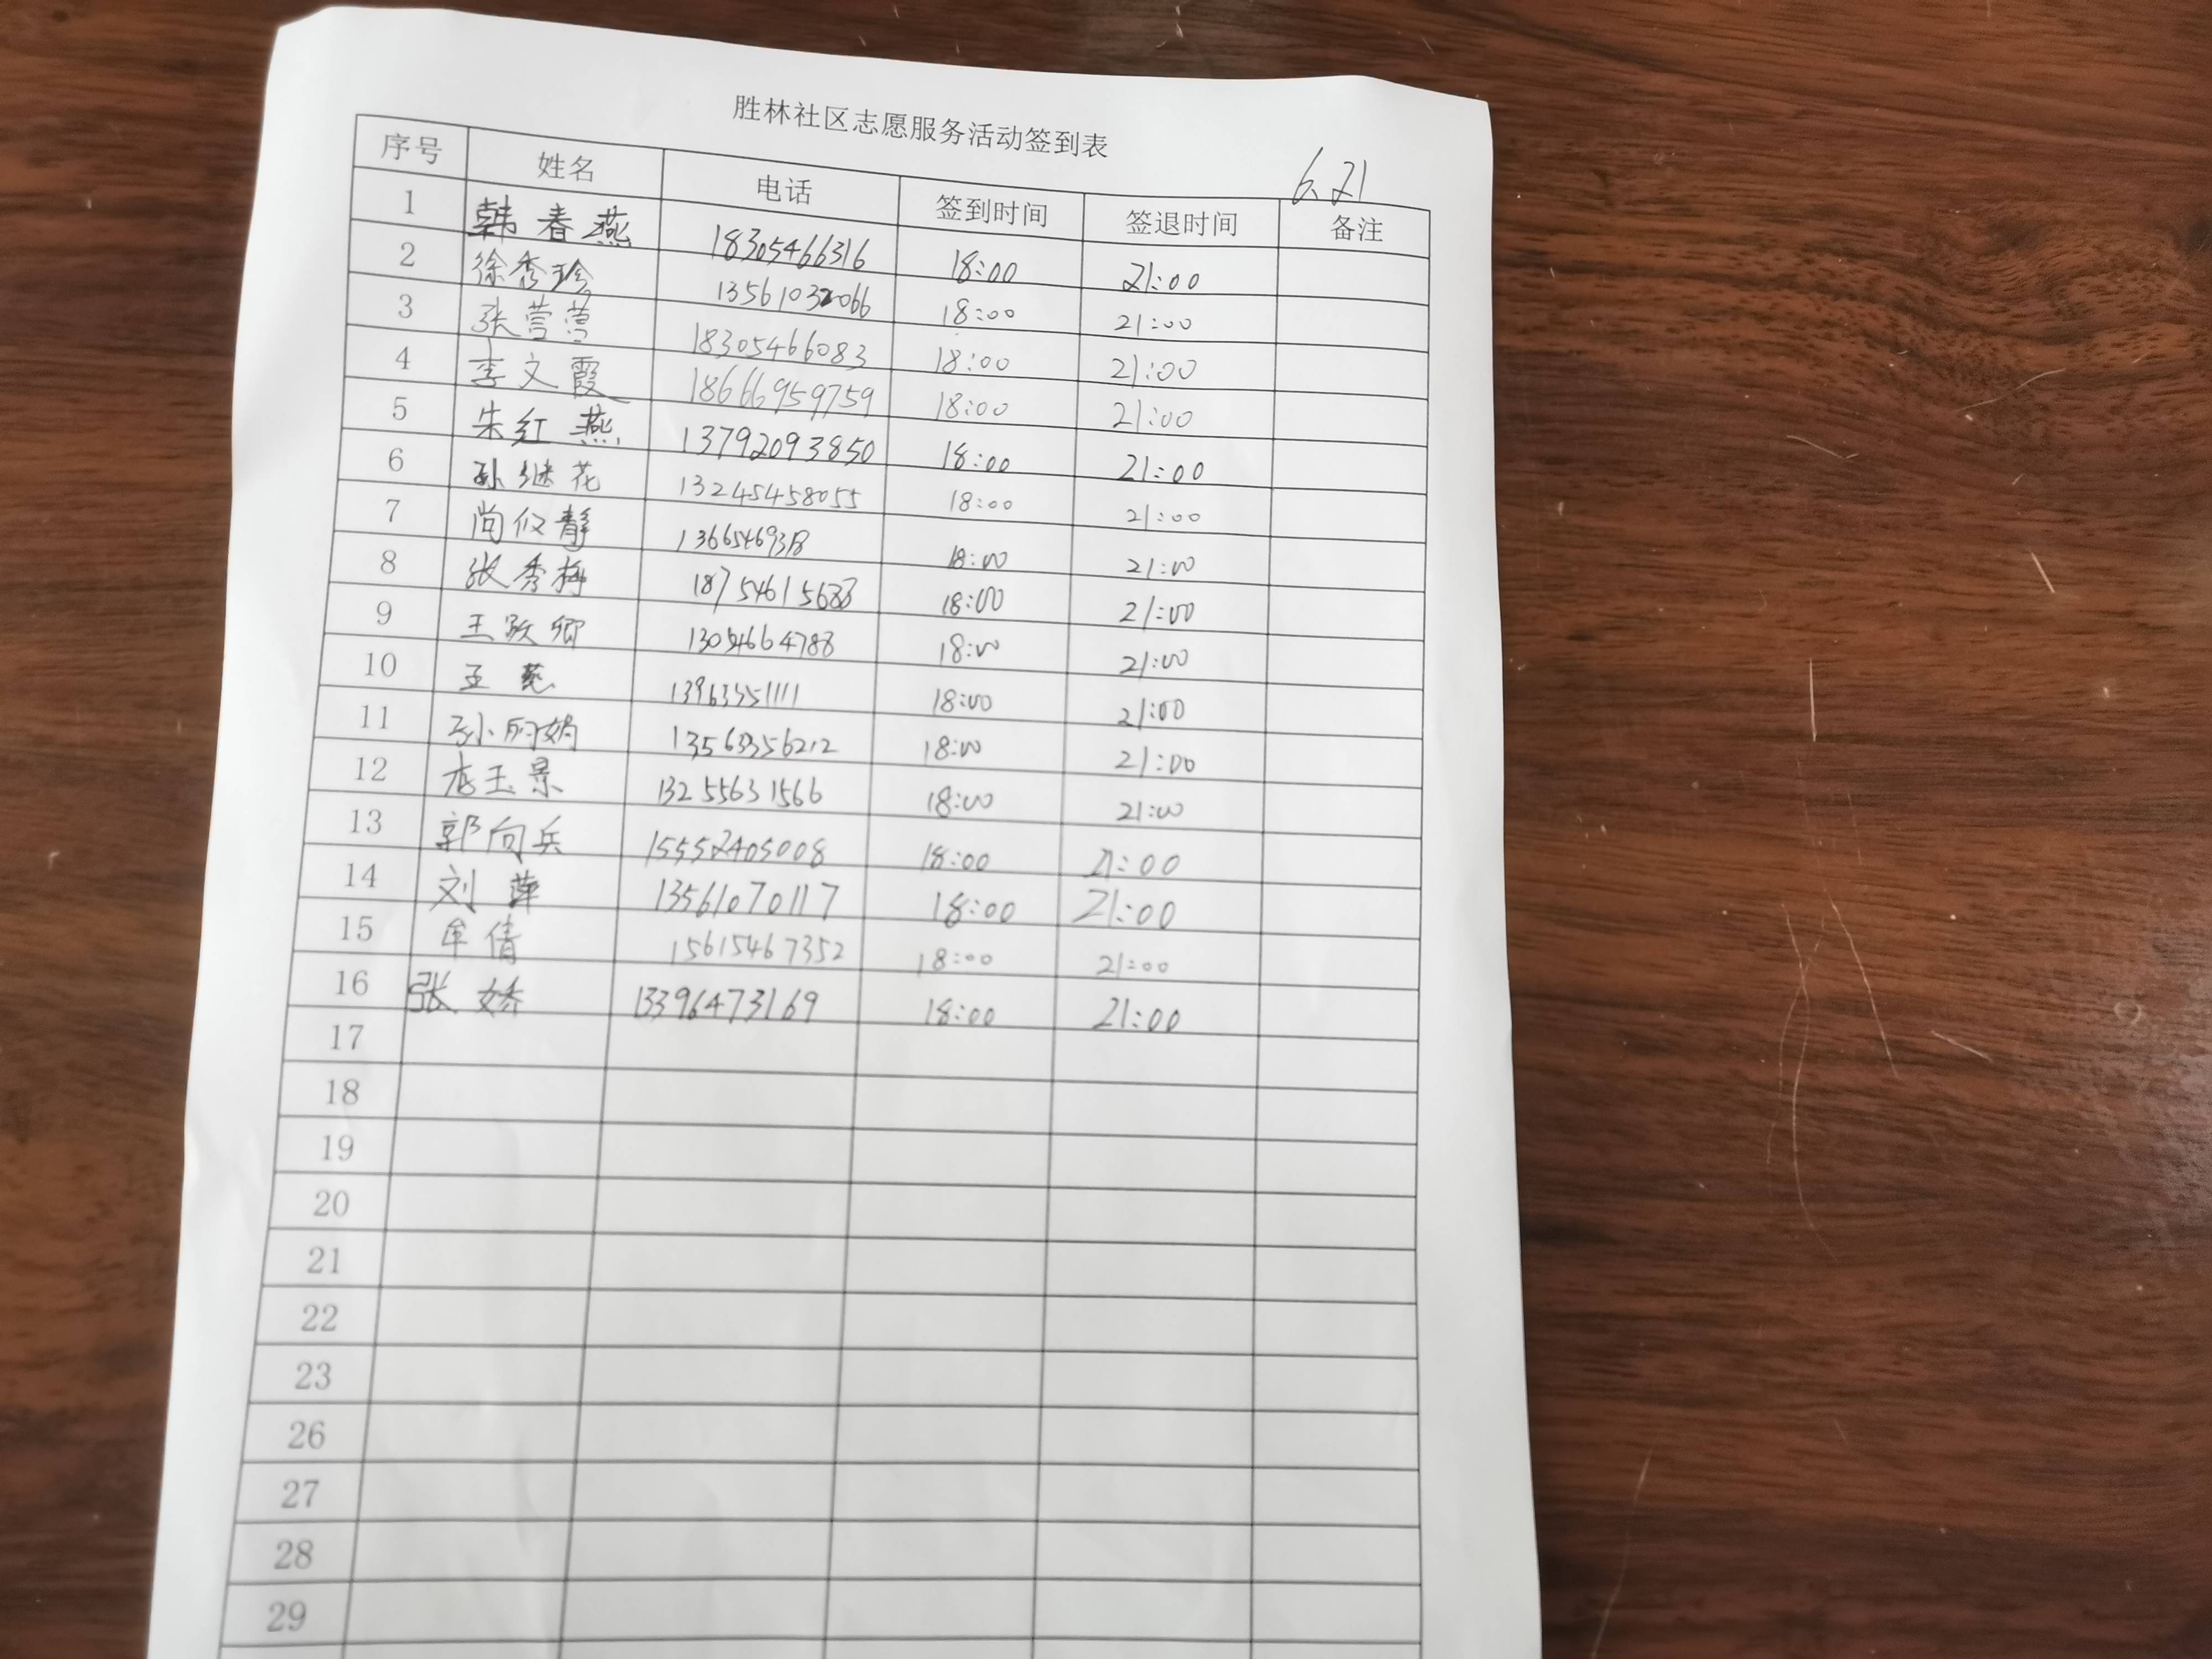 胜林社区志愿服务活动签到表
6.21
序号 姓名 电话 签到时间 签退时间 备注
1 韩春燕 18305466316 18:00 21:00
2 徐秀珍 13561032066 18:00 21:00
3 张营营 18305466083 18:00 21:00
4 李文霞 18666959759 18:00 21:00
5 朱红燕 13792093850 18:00 21:00
6 孙继花 13245458055 18:00 21:00
7 尚仪静 18:00 21:00
8 张秀梅 18:00 21:00
9 王跃卿 13054664788 18:00 21:00
10 王 18:00 21:00
11 孙丽娟 13563356212 18:00 21:00
12 玉景 13255631566 18:00 21:00
13 郭向兵 15552405008 18:00 21:00
14 刘萍 13561070117 18:00 21:00
15 牟倩 15615467352 18:00 21:00
16 张娇 13396473169 18:00 21:00
17
18
19
20
21
22
23
26
27
28
29